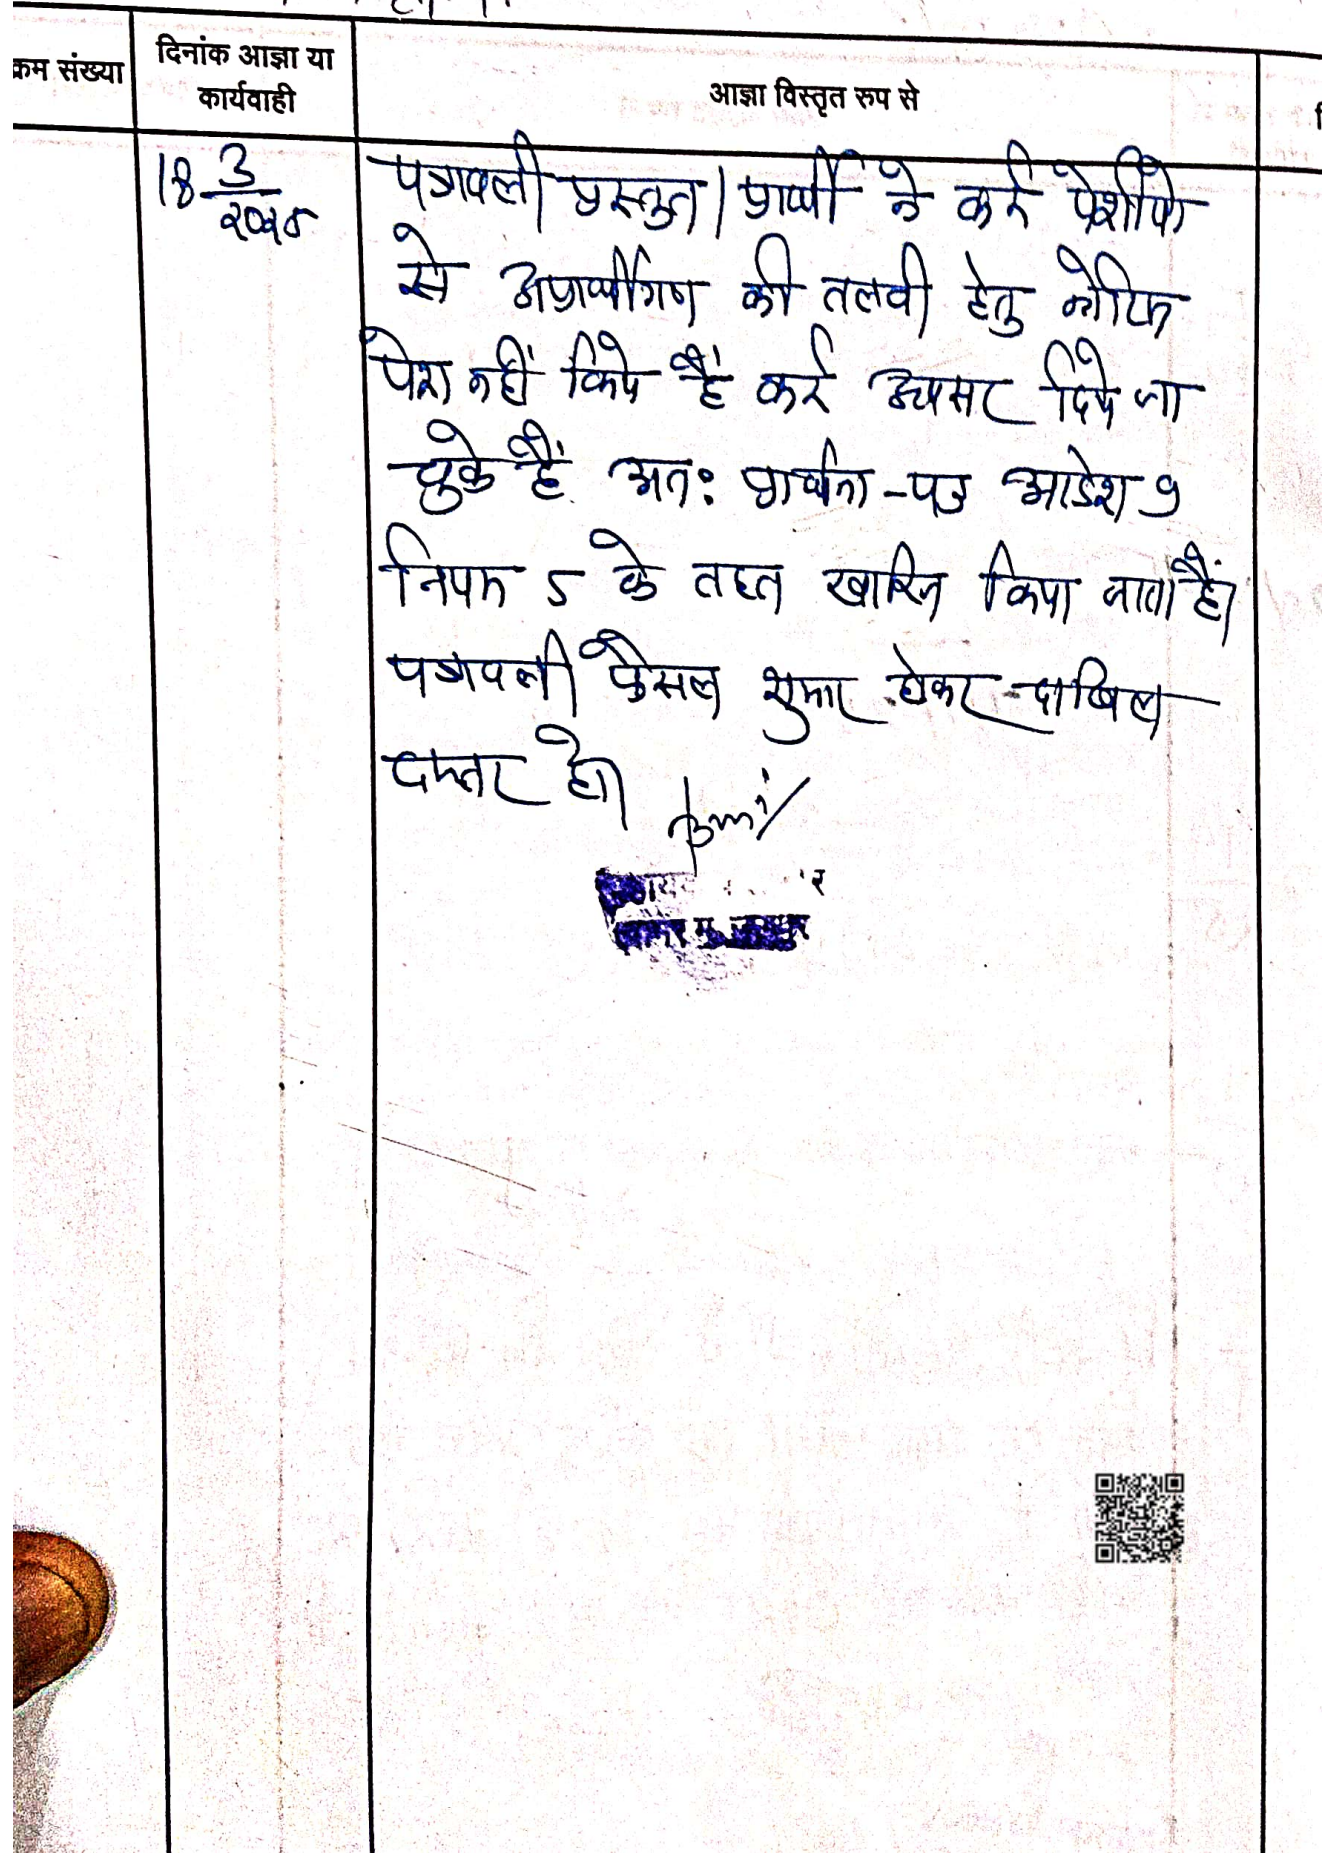 क्रम संख्या
दिनांक आज्ञा या
कार्यवाही
आज्ञा विस्तृत रुप से
18 3
पत्रावली प्रस्तुत। प्रार्थी ने कई पेशीयो
से अप्रार्थीगण की तलवी हेतु नोटिस
पेश नहीं किये है कई अवसर दिये जा
चुके है. अतः प्रार्थना-पत्र आदेश 9
नियम 5 के तहत खारिज किया जाता है।
पत्रावली फैसल शुमार होकर दाखिल
दफ्तर हो।